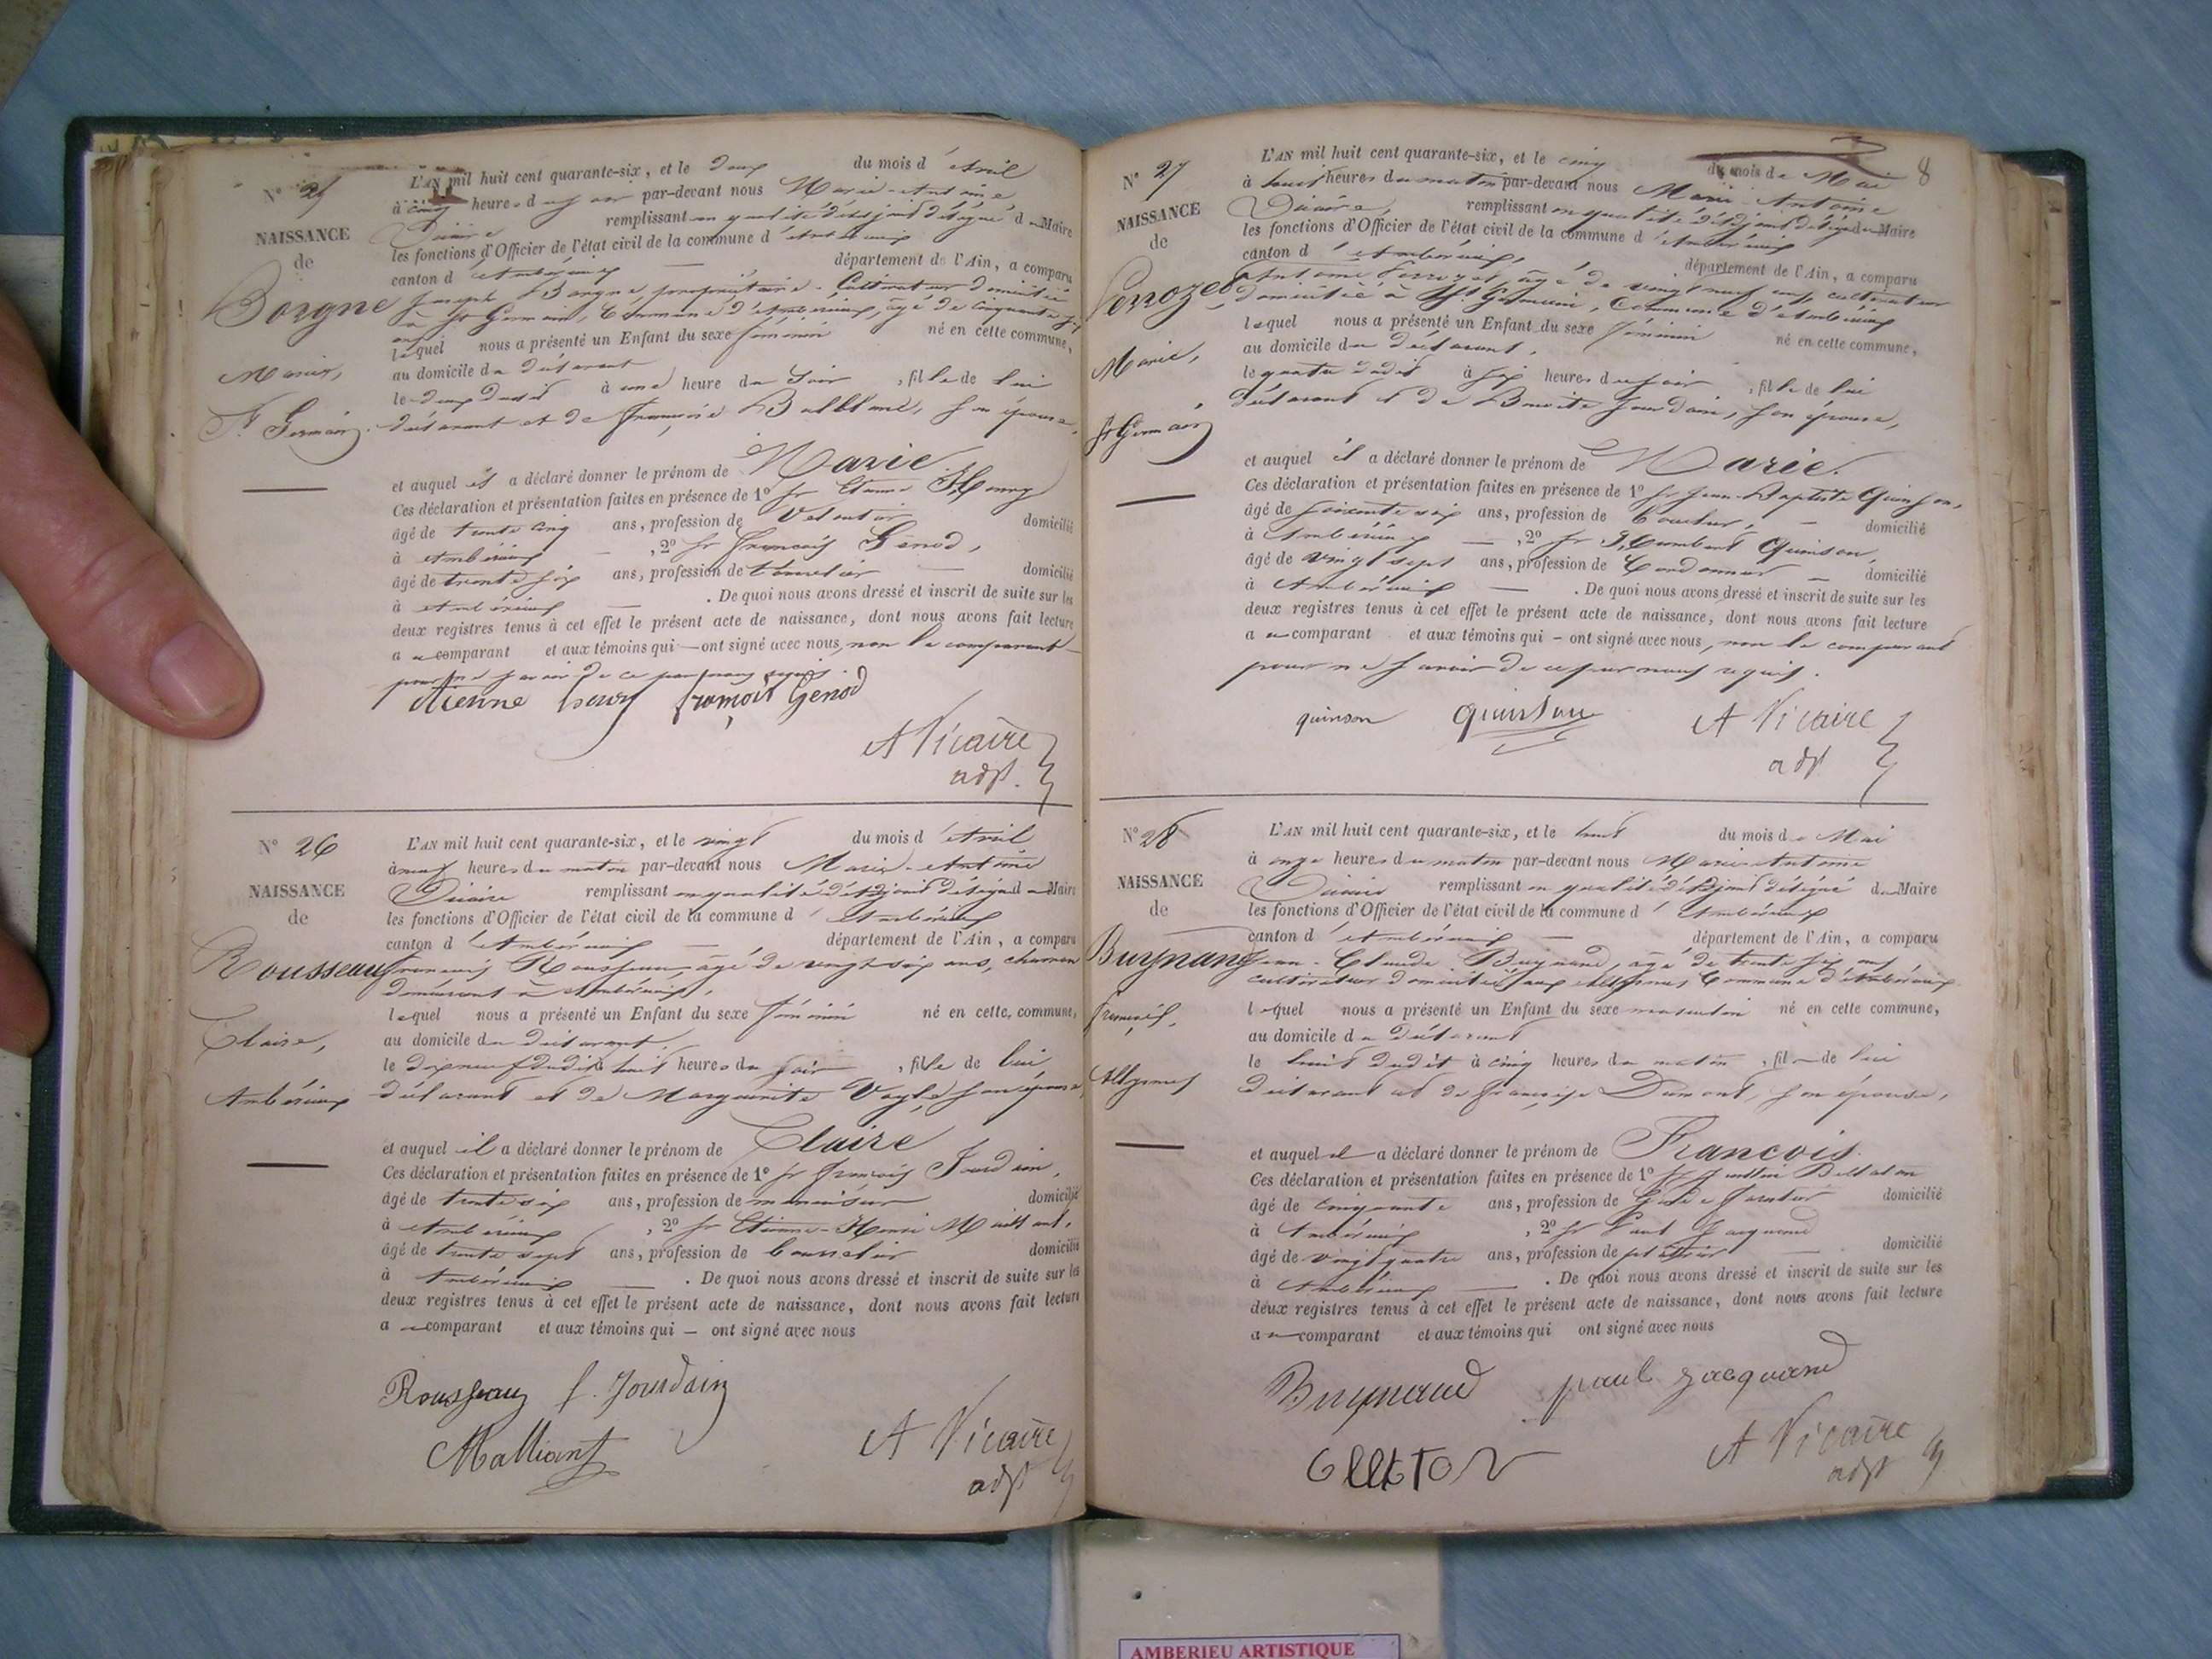 N° 25
NAISSANCE
de
Borgne
Marie,
St Germain
L'AN mil huit cent quarante-six, et le deux du mois d'Avril
à cinq heures du soir par-devant nous Marie-Antoine
Vicaire remplissant en qualité d'adjoint désigné du Maire
les fonctions d'Officier de l'état civil de la commune d'Ambérieux
canton d'Ambérieux département de l'Ain, a comparu
Joseph Borgne, propriétaire-Cultivateur domicilié
à St Germain, Commune d'Ambérieux, âgé de cinquante
ans
lequel nous a présenté un Enfant du sexe féminin né en cette commune,
au domicile du déclarant
le deux dudit à une heure du soir, fille de lui
déclarant et de Françoise Balbland, son épouse,
et auquel il a déclaré donner le prénom de Marie.
Ces déclaration et présentation faites en présence de 1° Sr Etienne Henry
âgé de trente cinq ans, profession de domicilié
à Ambérieux, 2° Sr François Genod,
âgé de trente six ans, profession de tonnelier domicilié
à Ambérieux. De quoi nous avons dressé et inscrit de suite sur les
deux registres tenus à cet effet le présent acte de naissance, dont nous avons fait lecture
au comparant et aux témoins qui ont signé avec nous, non le comparant
pour ne savoir de ce par nous requis.
Etienne henry françois Genod
A Vicaire
adjt.
N° 26
NAISSANCE
de
Rousseau
Claire,
Ambérieux
L'AN mil huit cent quarante-six, et le vingt du mois d'Avril
à neuf heures du matin par-devant nous Marie-Antoine
Vicaire remplissant en qualité d'adjoint désigné du Maire
les fonctions d'Officier de l'état civil de la commune d'Ambérieux
canton d'Ambérieux département de l'Ain, a comparu
François Rousseau, âgé de vingt six ans, charron
demeurant à Ambérieux,
lequel nous a présenté un Enfant du sexe féminin né en cette commune,
au domicile du déclarant
le dix neuf dudit à huit heures du soir, fille de lui
déclarant et de Marguerite Vayle, son épouse,
et auquel il a déclaré donner le prénom de Claire
Ces déclaration et présentation faites en présence de 1° Sr François Jourdain,
âgé de trente six ans, profession de menuisier domicilié
à Ambérieux, 2° Sr Etienne-Henri Malliant,
âgé de trente sept ans, profession de bourrelier domicilié
à Ambérieux. De quoi nous avons dressé et inscrit de suite sur les
deux registres tenus à cet effet le présent acte de naissance, dont nous avons fait lecture
au comparant et aux témoins qui ont signé avec nous
Rousseau f. Jourdain
Malliant A Vicaire
adjt
8
N° 27
NAISSANCE
de
Perrozet
Marie,
St Germain
L'AN mil huit cent quarante-six, et le cinq du mois de Mai
à huit heures du matin par-devant nous Marie-Antoine
Vicaire, remplissant en qualité d'adjoint désigné du Maire
les fonctions d'Officier de l'état civil de la commune d'Ambérieux
canton d'Ambérieux, département de l'Ain, a comparu
Antoine Perrozet, âgé de vingt neuf ans, cultivateur
domicilié à St Germain, Commune d'Ambérieux
lequel nous a présenté un Enfant du sexe féminin né en cette commune,
au domicile du déclarant,
le quatre dudit à six heures du soir, fille de lui
déclarant et de Benoite Jourdain, son épouse,
et auquel il a déclaré donner le prénom de Marie.
Ces déclaration et présentation faites en présence de 1° Sr Jean-Baptiste Quinson,
âgé de soixante six ans, profession de domicilié
à Ambérieux, 2° Sr Humbert Quinson,
âgé de vingt sept ans, profession de Cordonnier domicilié
à Ambérieux. De quoi nous avons dressé et inscrit de suite sur les
deux registres tenus à cet effet le présent acte de naissance, dont nous avons fait lecture
au comparant et aux témoins qui ont signé avec nous, non le comparant
pour ne savoir de ce par nous requis.
quinson quinson A Vicaire
adjt
N° 28
NAISSANCE
de
Buynand
François,
Allymes
L'AN mil huit cent quarante-six, et le huit du mois de Mai
à onze heures du matin par-devant nous Marie-Antoine
Vicaire remplissant en qualité d'adjoint désigné du Maire
les fonctions d'Officier de l'état civil de la commune d'Ambérieux
canton d'Ambérieux département de l'Ain, a comparu
Jean-Claude Buynand, âgé de trente six ans
cultivateur domicilié aux Allymes, Commune d'Ambérieux
lequel nous a présenté un Enfant du sexe masculin né en cette commune,
au domicile du déclarant
le huit dudit à cinq heures du matin, fils de lui
déclarant et de Françoise Dumont, son épouse,
et auquel il a déclaré donner le prénom de François.
Ces déclaration et présentation faites en présence de 1° Sr
âgé de cinquante ans, profession de domicilié
à Ambérieux, 2° Sr Paul Jacquand
âgé de vingt quatre ans, profession de domicilié
à Ambérieux. De quoi nous avons dressé et inscrit de suite sur les
deux registres tenus à cet effet le présent acte de naissance, dont nous avons fait lecture
au comparant et aux témoins qui ont signé avec nous
Buynand paul jacquand
A Vicaire
adjt
AMBERIEU ARTISTIQUE